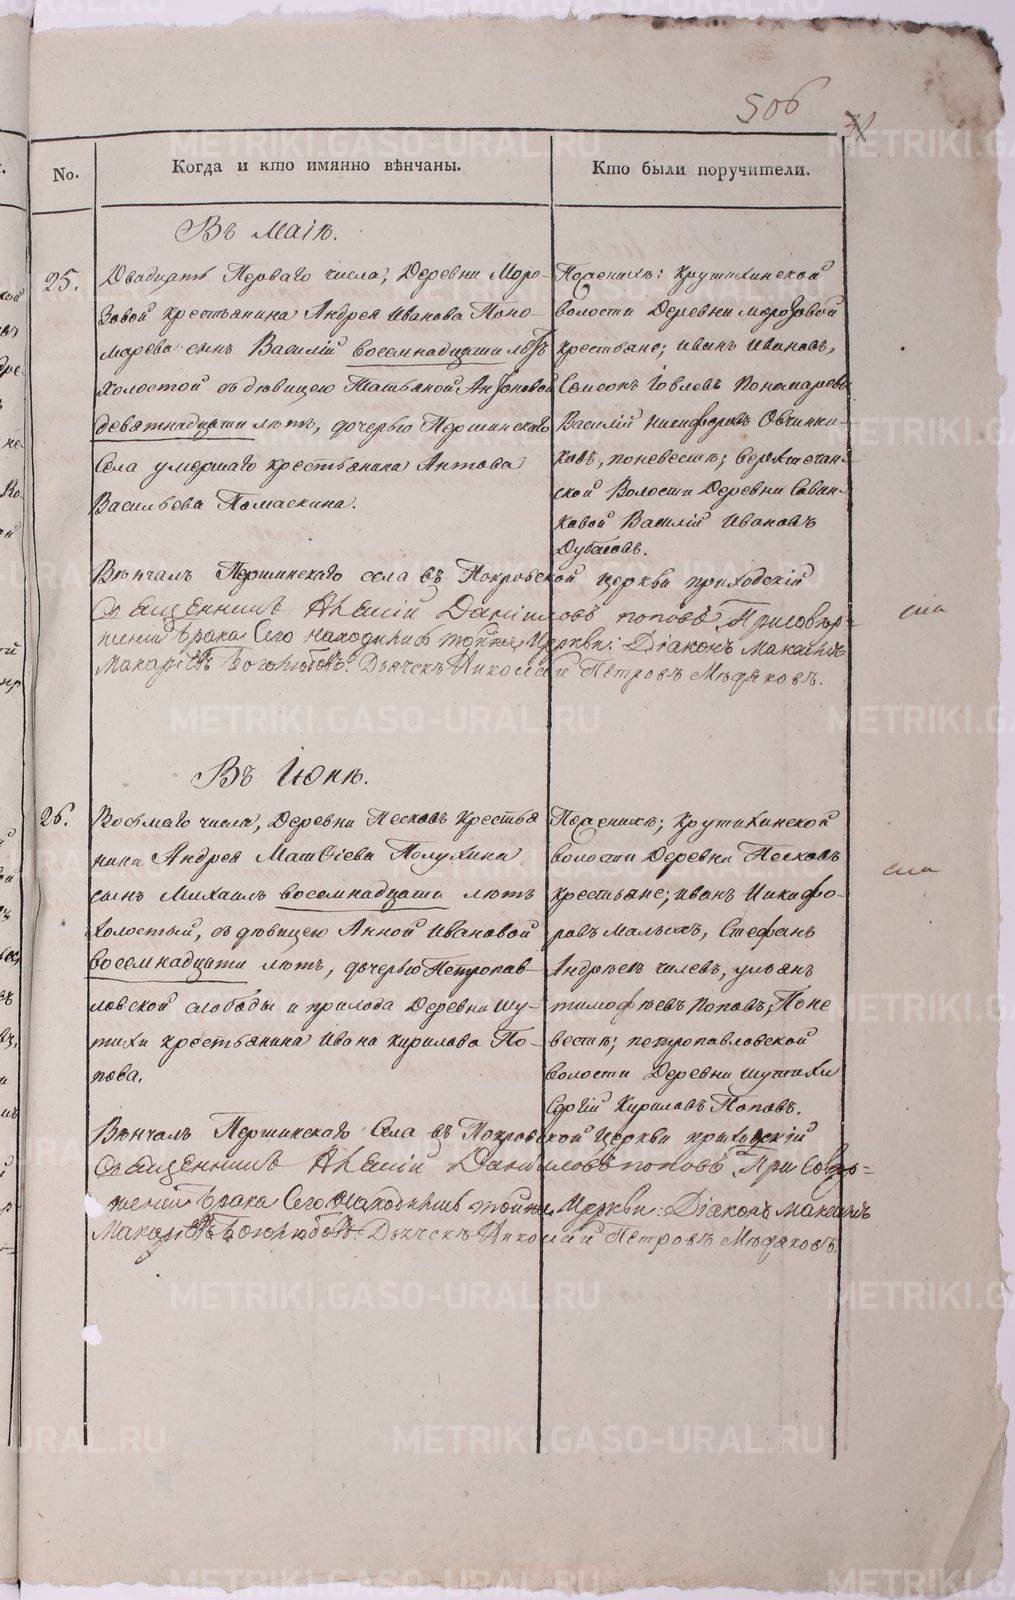 506
31
No.
Когда и кто имянно вѣнчаны.
Кто были поручители.
Въ Маіѣ.
25.
Двадцать Перваго числа, Деревни Моро-
зовой крестьянина Андрея Иванова Поно-
марева сынъ Василій восемнадцати лѣтъ
холостой съ дѣвицею Татьяной Антоновой
девятнадцати лѣтъ, дочерью Першинскаго
Села умершаго крестьянина Антона
Васильева Помаскина.
По женихѣ: Крутихинской
волости Деревни Морозовой
крестьяне; Иванъ Ивановъ,
Самсонъ Іовлевъ Пономаревы
Василій Никифоровъ Овчинни-
ковъ, по невестѣ;
ской Волости Деревни Савин-
ковой Василій Ивановъ
Дубасовъ.
Вѣнчалъ Першинскаго села съ Покровской церкви приходскій
Священникъ Алексій Даниловъ Поповъ. При совер-
шеніи брака Сего находились тойже Церкви: Діаконъ Максимъ
Макаріевъ Боголюбовъ. Дьячекъ Николай Петровъ Мѣдяковъ.
сіи
Въ Іюнѣ.
26.
Восьмаго числа, Деревни Песковъ Крестья
нина Андрея Матвіева Полухина
сынъ Михаилъ восемнадцати лѣтъ
холостый, съ дѣвицею Анной Ивановой
восемнадцати лѣтъ, дочерью Петропав-
ловской слободы и прихода Деревни Шу-
тихи крестьянина Ивана Кирилова По-
пова.
По женихѣ; Крутихинской
волости Деревни Песковъ
крестьяне; Иванъ Никифо-
ровъ Малыхъ, Стефанъ
Андрѣевъ Чилевъ, Ульянъ
Тимофѣевъ Поповъ, По не
вестѣ; Петропавловской
волости Деревни Шутихи
Сергій Кириловъ Поповъ.
Вѣнчалъ Першинскаго Села съ Покровской Церкви приходскій
Священникъ Алексій Даниловъ Поповъ. При совер-
шеніи брака Сего находились тойже Церкви: Діаконъ Максимъ
Макаріевъ Боголюбовъ. Дьячекъ Николай Петровъ Мѣдяковъ.
сіи
METRIKI.GASO-URAL.RU